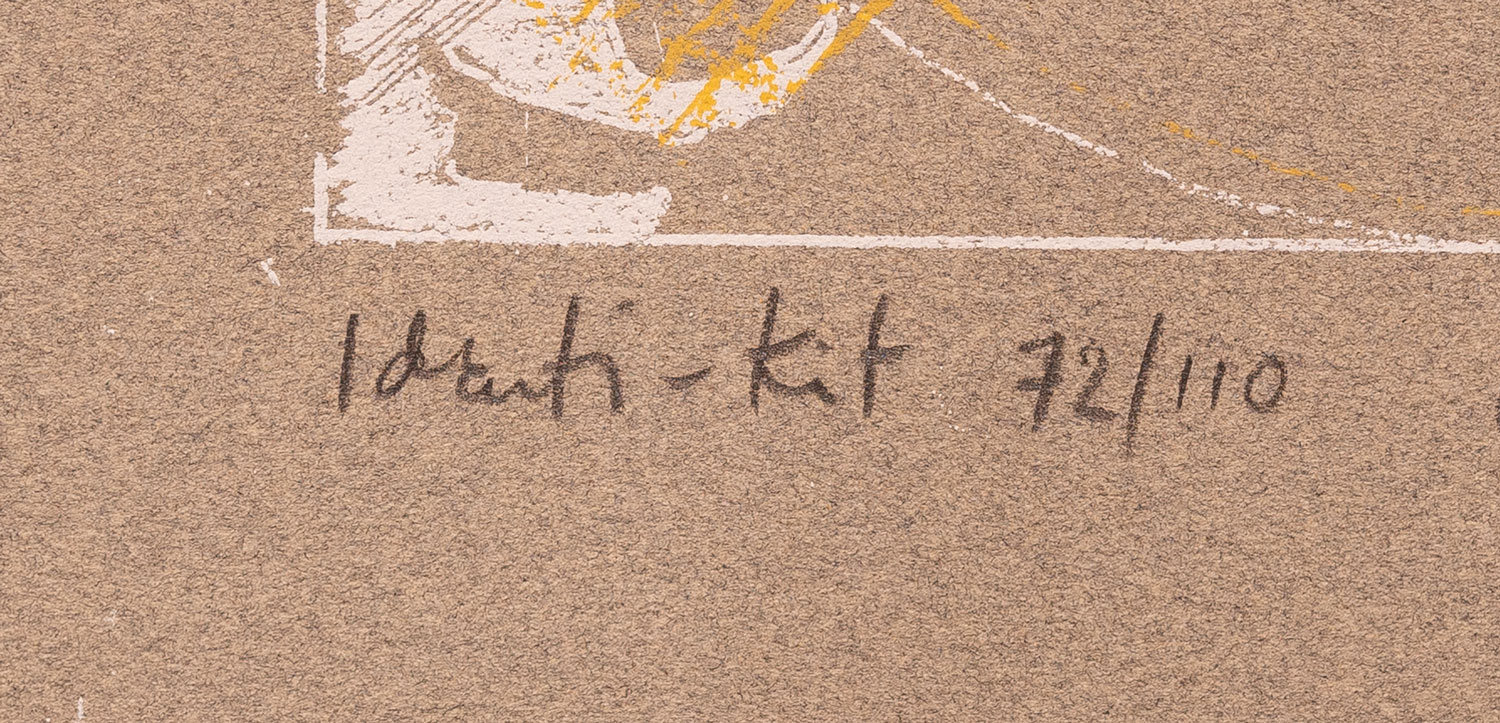 Identi-Kit 72/110